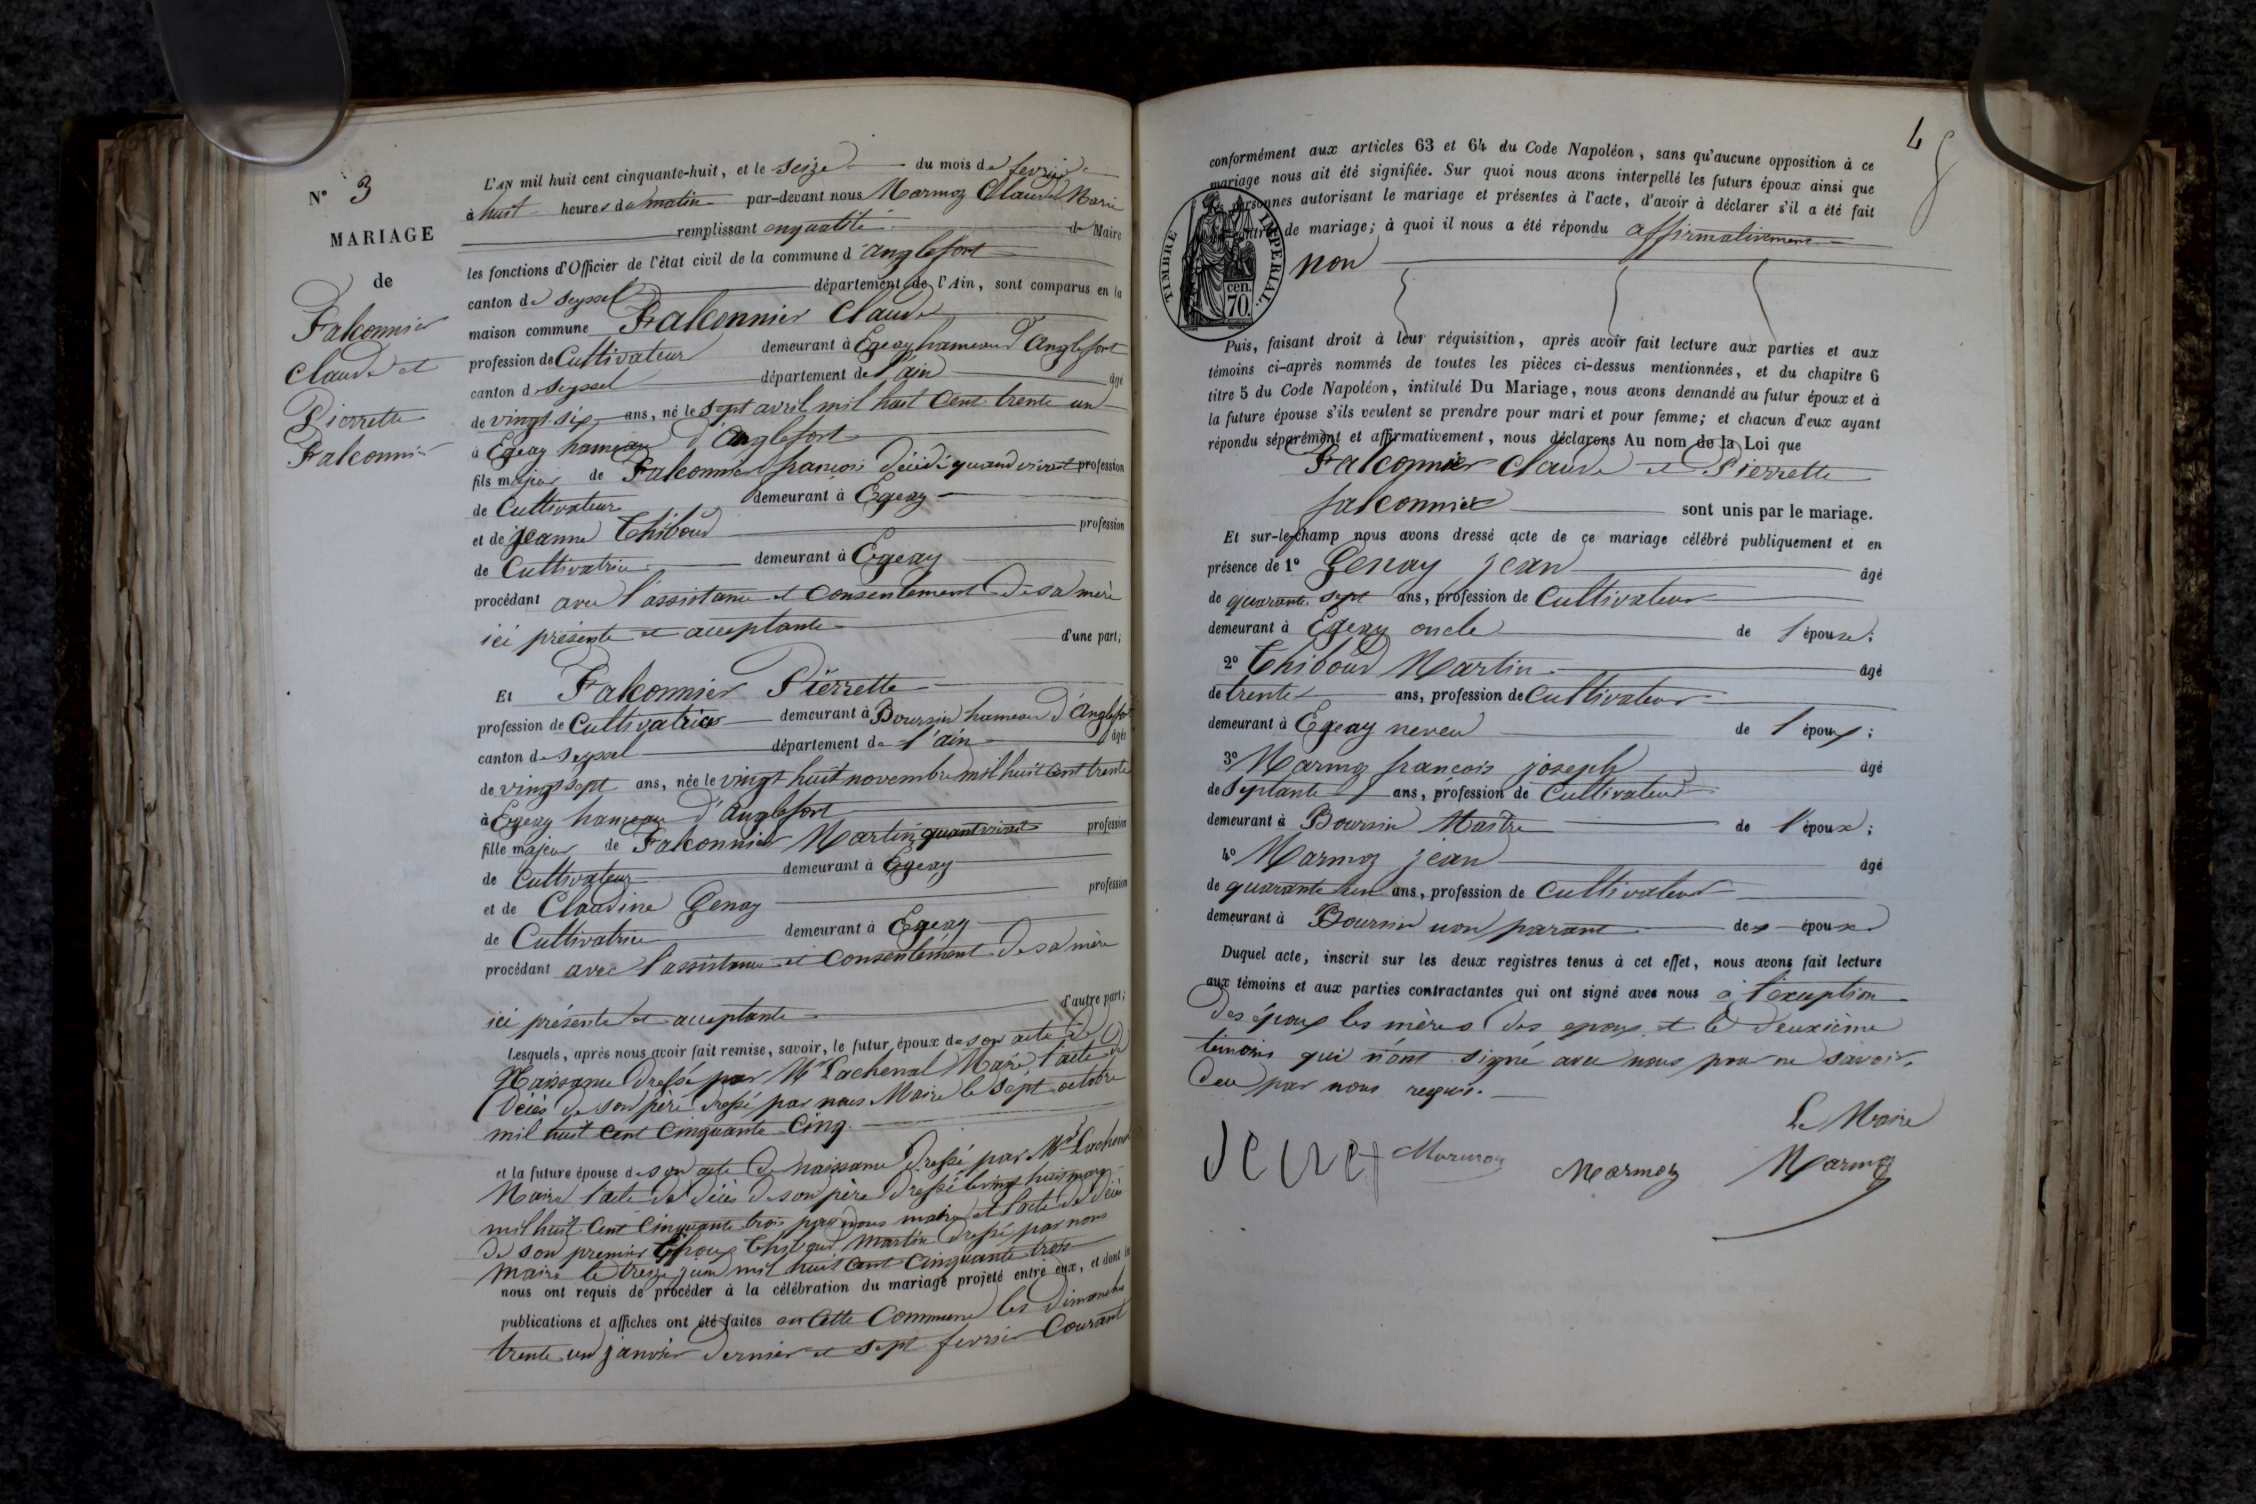 N° 3
MARIAGE
de
Falconnier
Claude et
Pierrette
Falconnier
L'AN mil huit cent cinquante-huit, et le seize du mois de fevrier
à huit heures du matin par-devant nous Marmoz Claude Marie
remplissant en qualité de Maire
les fonctions d'Officier de l'état civil de la commune d'anglefort
canton de Seyssel département de l'Ain, sont comparus en la
maison commune Falconnier Claude
profession de Cultivateur demeurant à Egeay hameau d'Anglefort
canton d seyssel département de l'ain âgé
de vingt six ans, né le sept avril mil huit Cent trente un
à Egeay hameau d'anglefort
fils majeur de Falconnier françois décédé quand vivait profession
de Cultivateur demeurant à Egeay
et de jeanne Thiboud profession
de Cultivatrice demeurant à Egeay
procédant avec l'assistance et Consentement de sa mère
ici présente et acceptante d'une part;
Et Falconnier Pierrette
profession de Cultivatrice demeurant à Boursin hameau d'Anglefort
canton de Seyssel département de l'ain âgée
de vingt sept ans, née le vingt huit novembre mil huit cent trente
à Egeay hameau d'Anglefort
fille majeur de Falconnier Martin quant vivait profession
de Cultivateur demeurant à Egeay
et de Claudine Genay profession
de Cultivatrice demeurant à Egeay
procédant avec l'assistance et Consentement de sa mère
ici présente et acceptante d'autre part;
Lesquels, après nous avoir fait remise, savoir, le futur époux de son acte de
Naissance dressé par Mr Lachenal Maire l'acte de
Décès de son père dressé par nous Maire le sept octobre
mil huit cent Cinquante Cinq
et la future épouse de son acte de naissance dressé par Mr Lachenal
Maire l'acte de décès de son père dressé le vingt huit mars
mil huit Cent Cinquante trois par nous maire et l'acte de décès
de son premier Epoux Thiboud Martin dressé par nous
Maire le treize juin mil huit cent Cinquante trois
nous ont requis de procéder à la célébration du mariage projeté entre eux, et dont les
publications et affiches ont été faites en Cette Commune les Dimanches
trente un janvier dernier et sept fevrier Courant
4
conformément aux articles 63 et 64 du Code Napoléon, sans qu'aucune opposition à ce
mariage nous ait été signifiée. Sur quoi nous avons interpellé les futurs époux ainsi que
personnes autorisant le mariage et présentes à l'acte, d'avoir à déclarer s'il a été fait
de mariage; à quoi il nous a été répondu affirmativement
non
TIMBRE IMPERIAL
cen.
70.
Puis, faisant droit à leur réquisition, après avoir fait lecture aux parties et aux
témoins ci-après nommés de toutes les pièces ci-dessus mentionnées, et du chapitre 6
titre 5 du Code Napoléon, intitulé Du Mariage, nous avons demandé au futur époux et à
la future épouse s'ils veulent se prendre pour mari et pour femme; et chacun d'eux ayant
répondu séparément et affirmativement, nous déclarons Au nom de la Loi que
Falconnier Claude et Pierrette
falconnier sont unis par le mariage.
Et sur-le-champ nous avons dressé acte de ce mariage célébré publiquement et en
présence de 1° Genay jean âgé
de quarante sept ans, profession de Cultivateur
demeurant à Egeay oncle de l'épouse;
2° Thiboud Martin âgé
de trente ans, profession de Cultivateur
demeurant à Egeay neveu de l'époux;
3° Marmoz françois joseph âgé
de Septante ans, profession de Cultivateur
demeurant à Boursin de l'époux;
4° Marmoz jean âgé
de quarante un ans, profession de Cultivateur
demeurant à Boursin non parant des époux
Duquel acte, inscrit sur les deux registres tenus à cet effet, nous avons fait lecture
aux témoins et aux parties contractantes qui ont signé avec nous à l'exception
des époux les mères des epoux et le deuxième
témoin qui n'ont signé avec nous pour ne savoir,
de ce par nous requis.
Le Maire
Marmoz Marmoz Marmoz